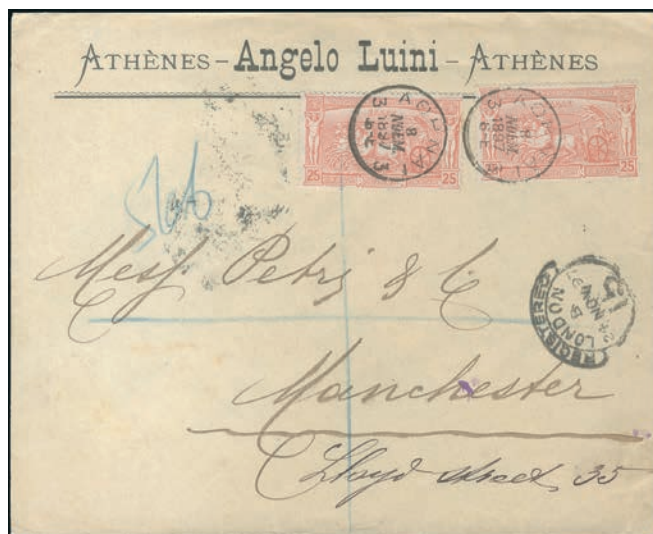 ATHÈNES – Angelo Luini – ATHÈNES
25 25 25
ΑΘΗΝΑΙ 3
8
ΝΟΕΜ.
1897
3
ΑΘΗΝΑΙ
8
ΝΟΕΜ.
1897
3
Mess Petrj & C.
REGISTERED
LONDON
Manchester
Lloyd street, 35